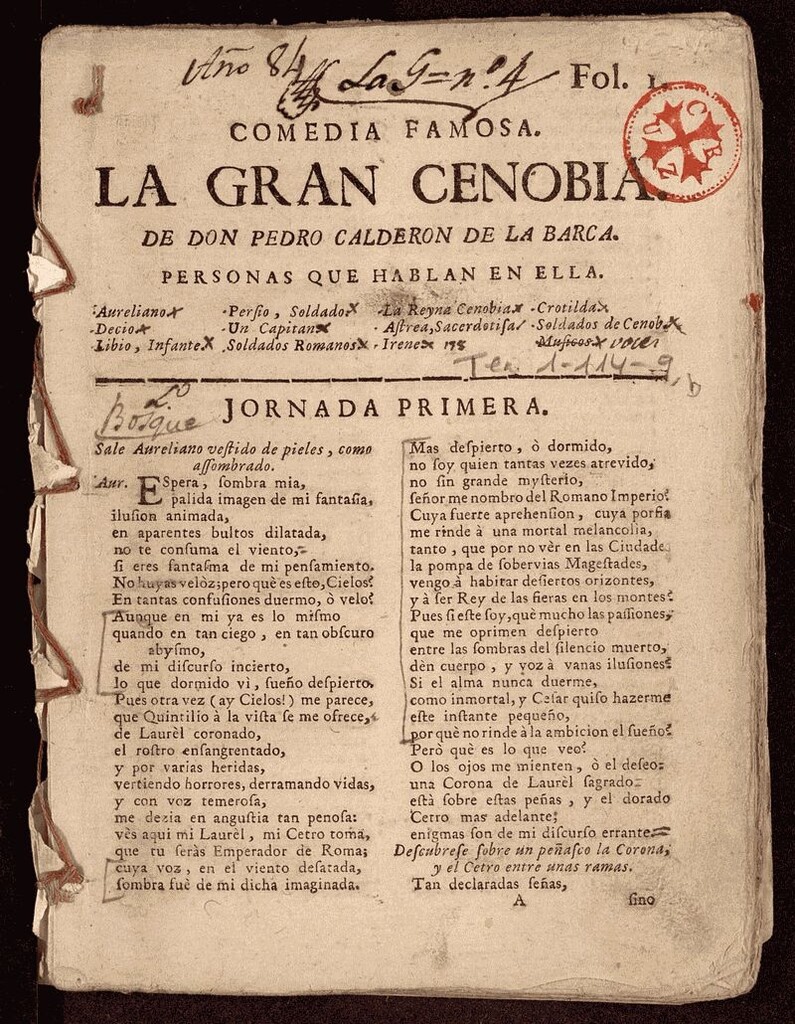 Año 84 La G=nº.4 Fol. 1.
COMEDIA FAMOSA.
LA GRAN CENOBIA.
DE DON PEDRO CALDERON DE LA BARCA.
PERSONAS QUE HABLAN EN ELLA.
Aureliano. Perſio, Soldado. La Reyna Cenobia. Crotilda.
Decio. Un Capitan. Aſtrea, Sacerdotiſa. Soldados de Cenob.
Libio, Infante. Soldados Romanos. Irene. Muſicos. voces
Tea. 1-114-9, b
Lº
Bosque
JORNADA PRIMERA.
Sale Aureliano veſtido de pieles, como
aſſombrado.
Aur. ESpera, ſombra mia,
palida imagen de mi fantaſia,
iluſion animada,
en aparentes bultos dilatada,
no te conſuma el viento,
ſi eres fantaſma de mi penſamiento.
No huyas velòz; pero què es eſto, Cielos?
En tantas confuſiones duermo, ò velo?
Aunque en mi ya es lo miſmo
quando en tan ciego, en tan obſcuro
abyſmo,
de mi diſcurſo incierto,
lo que dormido vì, ſueño deſpierto.
Pues otra vez (ay Cielos!) me parece,
que Quintilio à la viſta ſe me ofrece,
de Laurèl coronado,
el roſtro enſangrentado,
y por varias heridas,
vertiendo horrores, derramando vidas,
y con voz temeroſa,
me dezia en anguſtia tan penoſa:
vès aqui mi Laurèl, mi Cetro toma,
que tu ſeràs Emperador de Roma;
cuya voz, en el viento deſatada,
ſombra fuè de mi dicha imaginada.
Mas deſpierto, ò dormido,
no ſoy quien tantas vezes atrevido,
no ſin grande myſterio,
ſeñor me nombro del Romano Imperio?
Cuya fuerte aprehenſion, cuya porfia
me rinde à una mortal melancolia,
tanto, que por no vèr en las Ciudade
la pompa de ſobervias Mageſtades,
vengo à habitar deſiertos orizontes,
y à ſer Rey de las fieras en los montes?
Pues ſi eſte ſoy, què mucho las paſſiones,
que me oprimen deſpierto
entre las ſombras del ſilencio muerto,
dèn cuerpo, y voz à vanas iluſiones?
Si el alma nunca duerme,
como inmortal, y Ceſar quiſo hazerme
eſte inſtante pequeño,
por què no rinde à la ambicion el ſueño?
Però què es lo que veo?
O los ojos me mienten, ò el deſeo:
una Corona de Laurèl ſagrado
eſtà ſobre eſtas peñas, y el dorado
Cetro mas adelante;
enigmas ſon de mi diſcurſo errante.
Deſcubreſe ſobre un peñaſco la Corona,
y el Cetro entre unas ramas.
Tan declaradas ſeñas,
A ſino